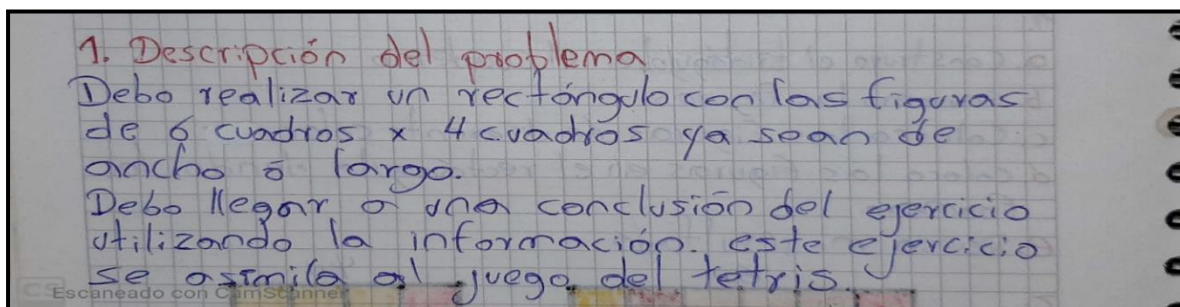 1. Descripción del problema
Debo realizar un rectángulo con las figuras
de 6 cuadros x 4 cuadros ya sean de
ancho ó largo.
Debo llegar a una conclusión del ejercicio
utilizando la información. este ejercicio
se asimila al juego del tetris.
Escaneado con CamScanner